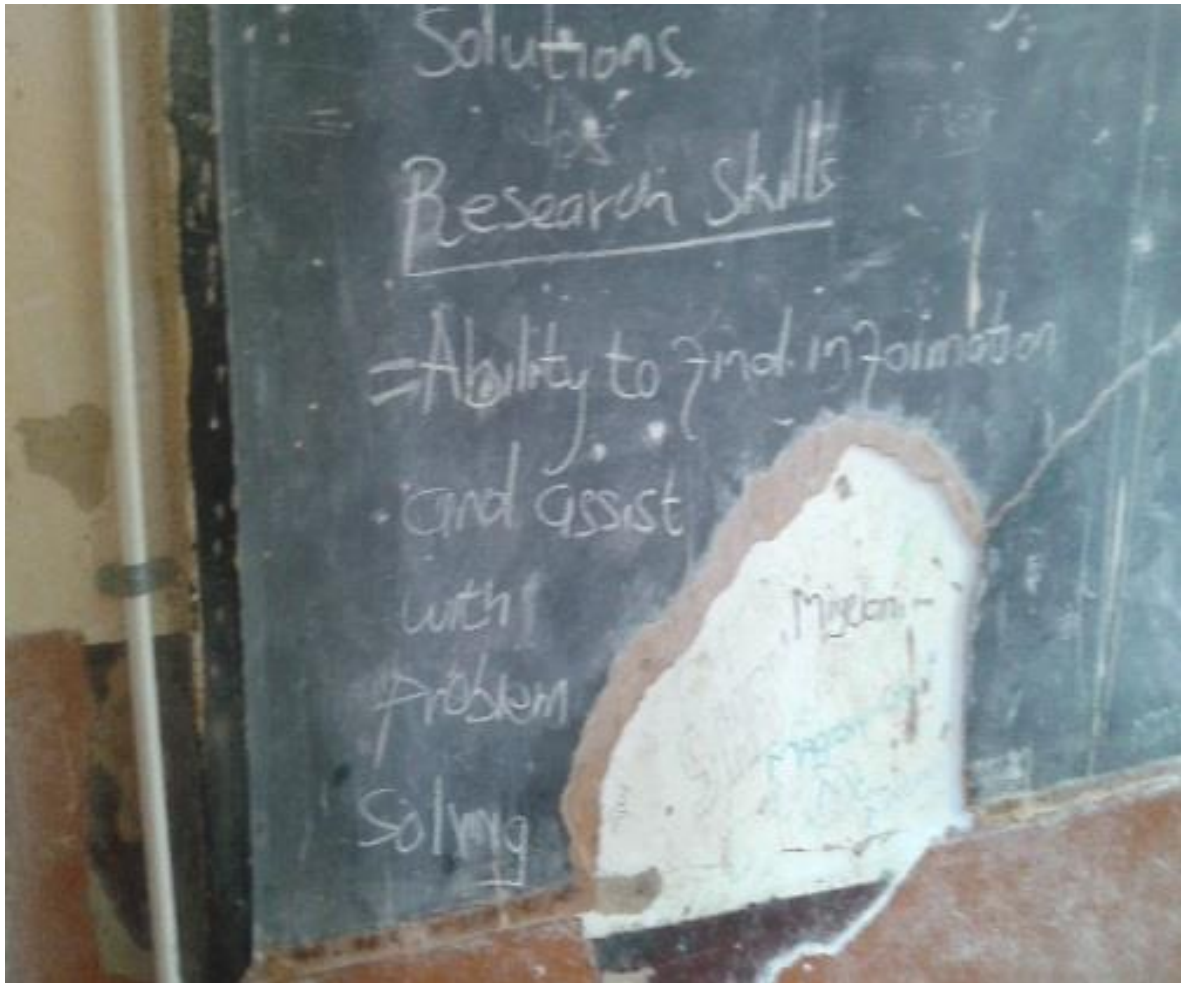 Solutions.
Research Skills
=Ability to find information
and assist
with
problem
Solving